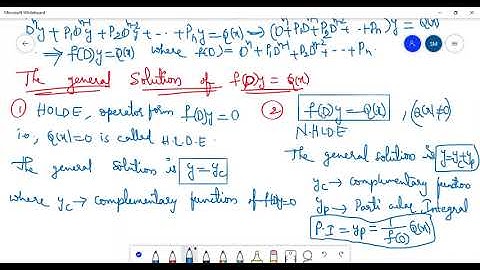 Microsoft Whiteboard
Dⁿy + P₁Dⁿ⁻¹y + P₂Dⁿ⁻²y + ··· + Pₙy = Q(x) ⟹ (Dⁿ + P₁Dⁿ⁻¹ + P₂Dⁿ⁻² + ··· + Pₙ)y = Q(x)
⟹ f(D)y = Q(x) where f(D) = Dⁿ + P₁Dⁿ⁻¹ + P₂Dⁿ⁻² + ··· + Pₙ
SM
The general Solution of f(D)y = Q(x)
① HOLDE, operator form f(D)y = 0
i.e., Q(x) = 0 is called H.L.D.E.
The general solution is y = yc
where yc → Complementary function of f(D)y = 0
② f(D)y = Q(x), (Q(x) ≠ 0)
N.H.L.D.E
The general solution is y = yc + yp
yc → complementary function
yp → Particular Integral
P.I = yp = 1/f(D) Q(x)